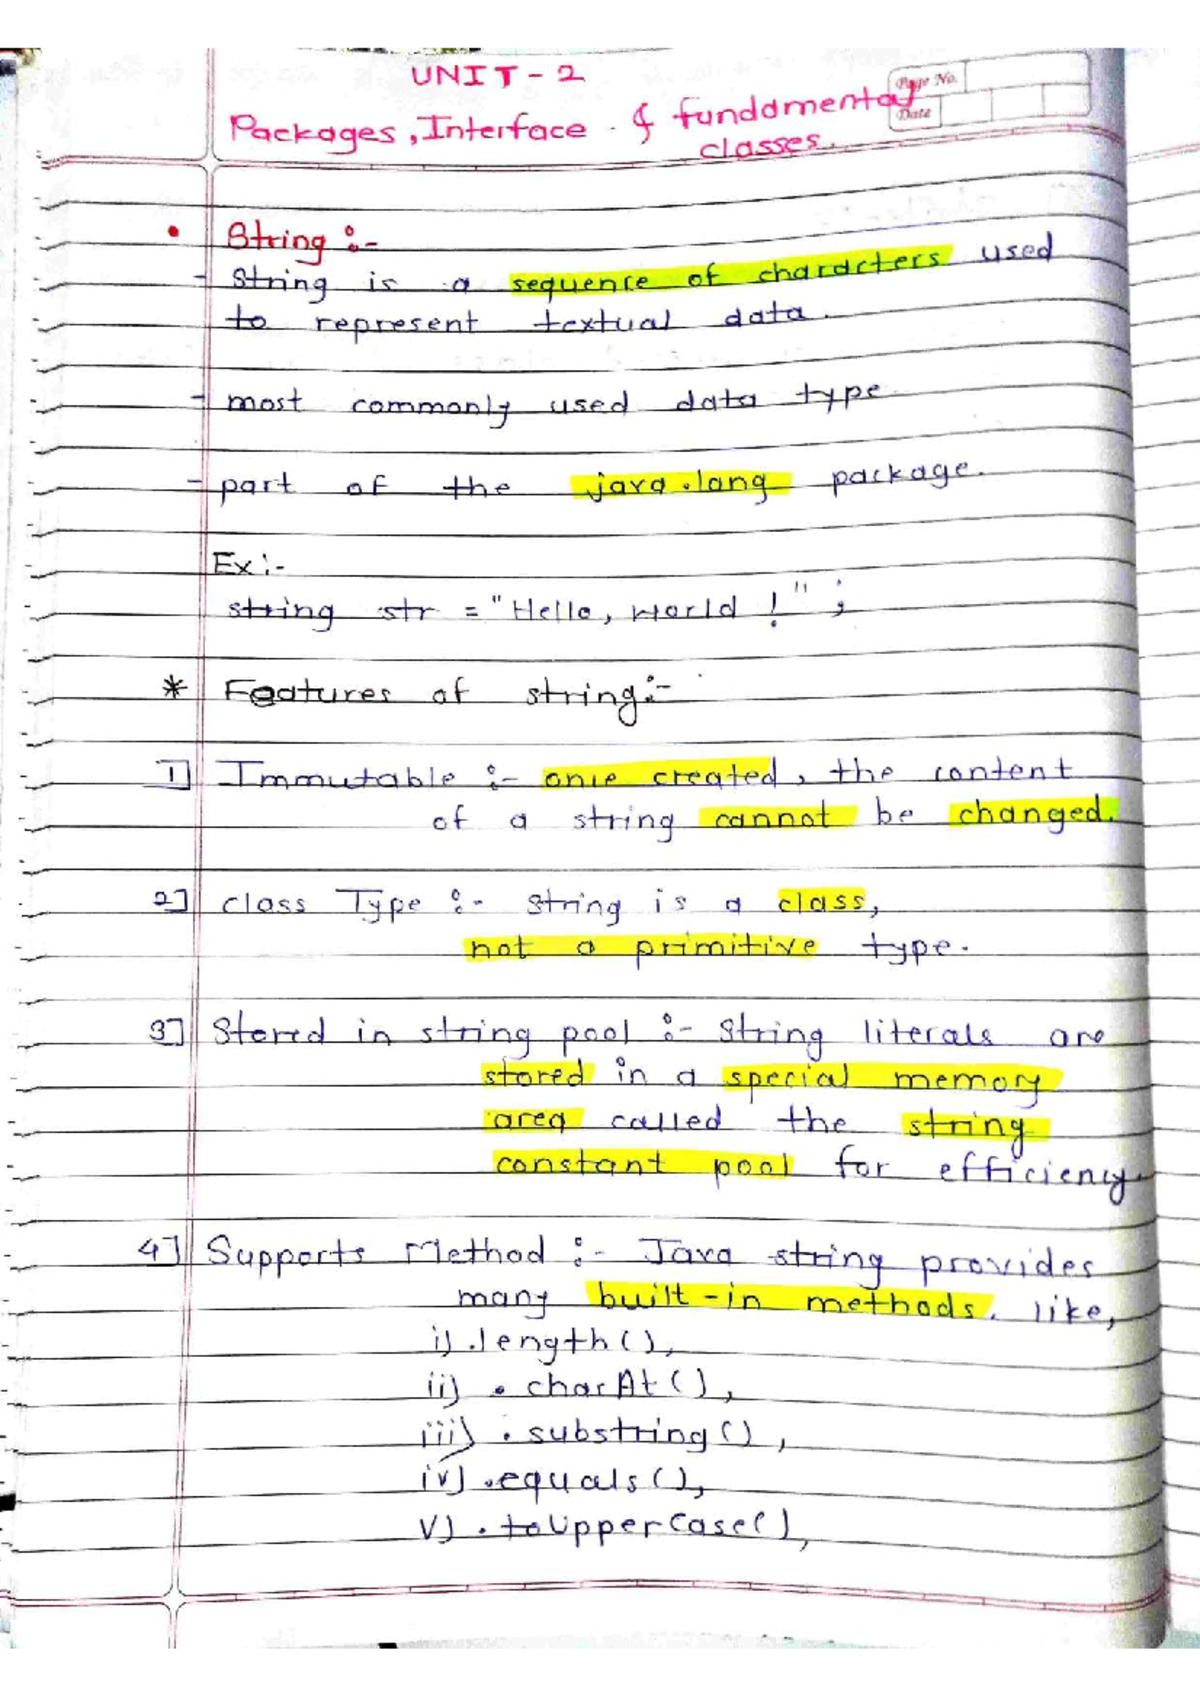 UNIT-2
Page No.
Date
Packages, Interface & fundamental
classes.
• String :-
- String is a sequence of characters used
to represent textual data.
- most commonly used data type
- part of the java.lang package.
Ex:-
string str = "Hello, World!";
* Features of string:-
1] Immutable :- once created, the content
of a string cannot be changed.
2] class Type :- string is a class,
not a primitive type.
3] Stored in string pool :- String literals are
stored in a special memory
area called the string
constant pool for efficiency.
4] Supports Method :- Java string provides
many built-in methods. like,
i) .length(),
ii) .charAt(),
iii) .substring(),
iv) .equals(),
v) .toUpperCase(),